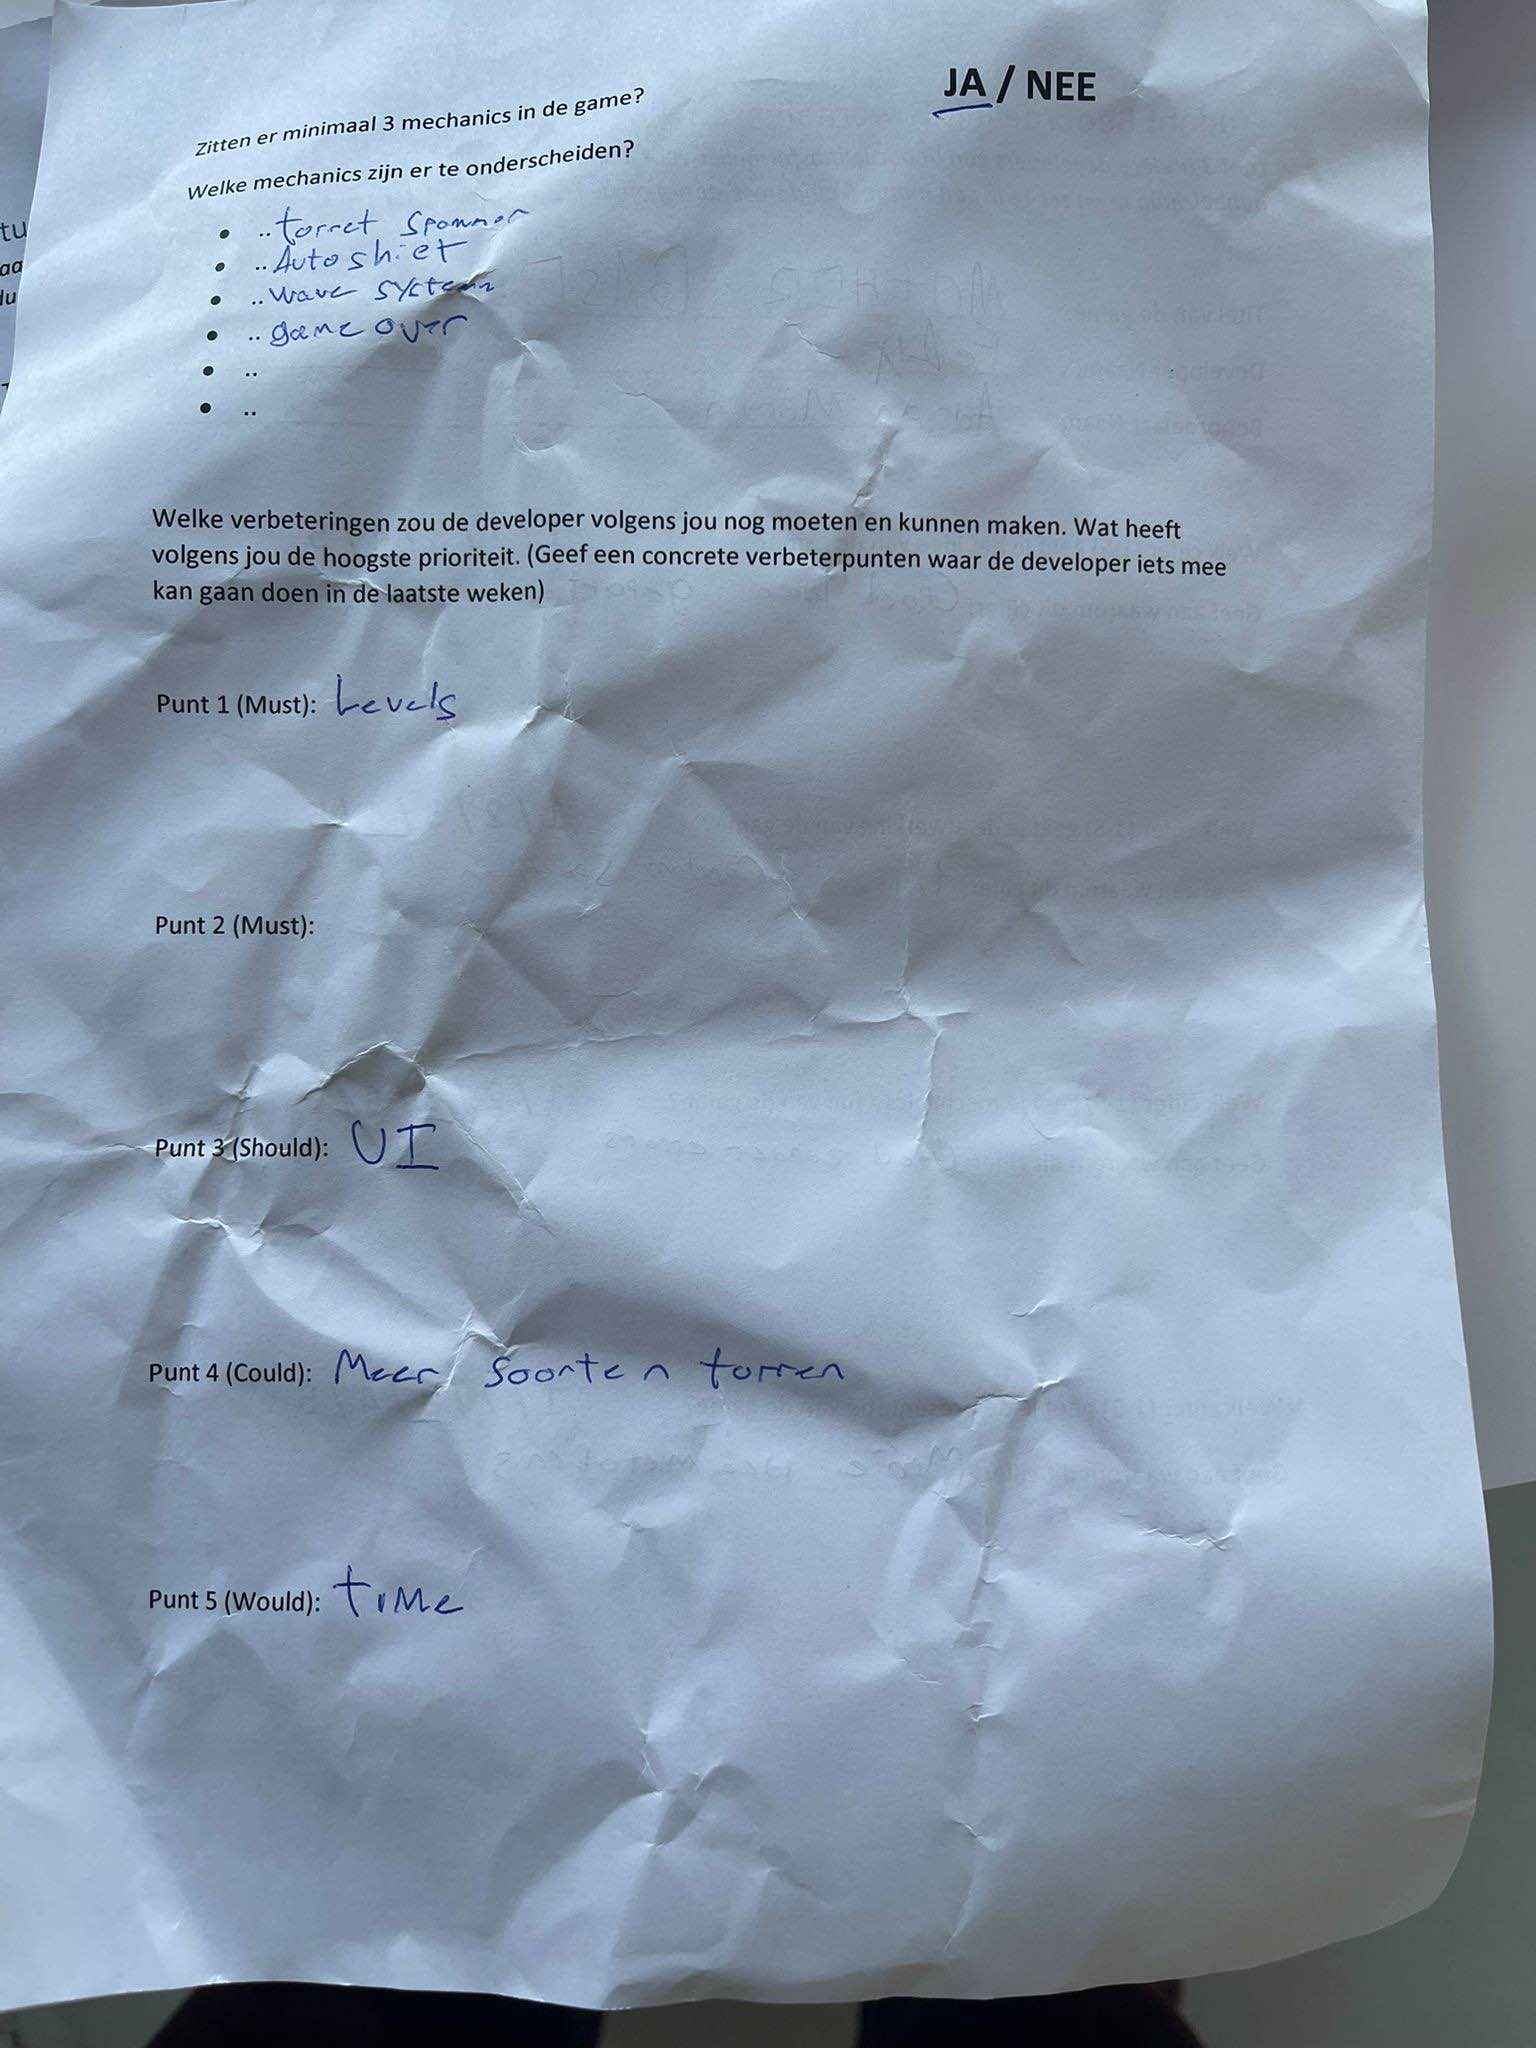 Zitten er minimaal 3 mechanics in de game?
JA / NEE
Welke mechanics zijn er te onderscheiden?
• .. torret spawner
• .. Autoshiet
• .. wave system
• .. game over
• ..
• ..
Welke verbeteringen zou de developer volgens jou nog moeten en kunnen maken. Wat heeft
volgens jou de hoogste prioriteit. (Geef een concrete verbeterpunten waar de developer iets mee
kan gaan doen in de laatste weken)
Punt 1 (Must): Levels
Punt 2 (Must):
Punt 3 (Should): UI
Punt 4 (Could): Meer soorten torren
Punt 5 (Would): time